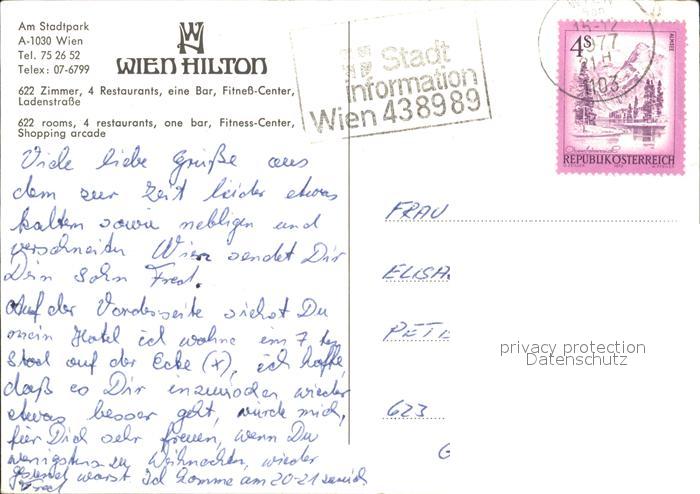 Am Stadtpark
A-1030 Wien
Tel. 75 26 52
Telex: 07-6799
WIEN HILTON
622 Zimmer, 4 Restaurants, eine Bar, Fitneß-Center,
Ladenstraße
622 rooms, 4 restaurants, one bar, Fitness-Center,
Shopping arcade
Stadt
information
Wien 438989
15-12
1977
21H
1103
4S
ALMSEE
REPUBLIK ÖSTERREICH
Viele liebe Grüße aus
dem zur Zeit leider etwas
kalten sowie nebligen und
verschneiten Wien sendet Dir
Dein Sohn Fred.
Auf der Vorderseite siehst Du
mein Hotel ich wohne im 7 ten
Stock auf der Ecke (x), ich hoffe,
daß es Dir inzwischen wieder
etwas besser geht, würde mich
für Dich sehr freuen, wenn Du
wenigstens zu Weihnachten, wieder
gesund warst. Ich komme am 20-21 zurück
Fred
FRAU
ELISA
PETE
623
G
privacy protection
Datenschutz